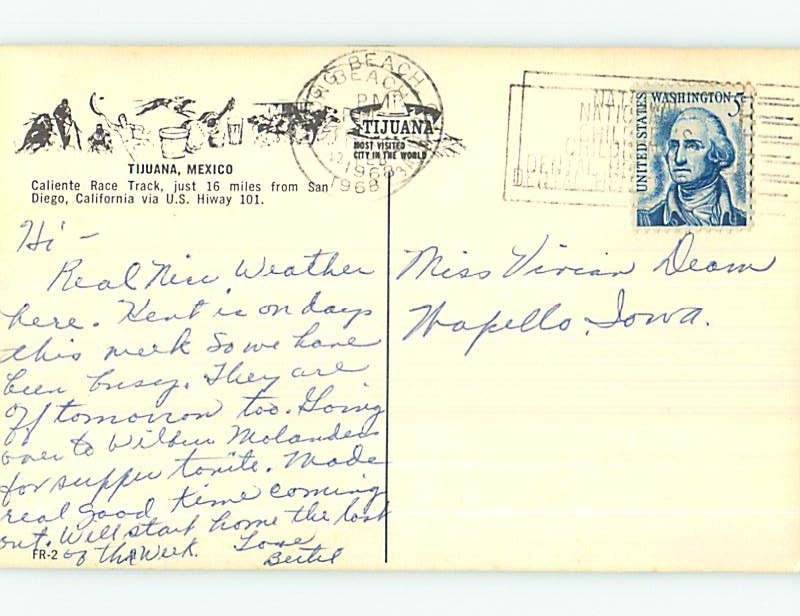 TIJUANA, MEXICO
Caliente Race Track, just 16 miles from San
Diego, California via U.S. Hiway 101.
BEACH
BEACH
PM
1968
1968
TIJUANA
MOST VISITED
CITY IN THE WORLD
NATIONAL
UNITED STATES
WASHINGTON 5c
Hi -
Real Nice Weather
here. Kent is on days
this week So we have
been busy. They are
off tomorrow too. Going
over to Wilbur Molanders
for supper tonite. Made
real good time coming
out. Will start home the last
of the Week.
Love
Bertel
FR-2
Miss Vivian Deam
Wapello, Iowa.